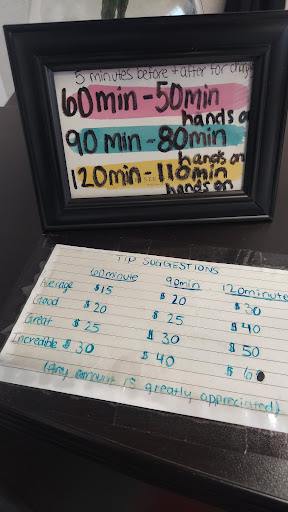 5 minutes before + after for chang
60min - 50min
hands on
90 min - 80min
hands on
120min - 110min
hands on
TIP SUGGESTIONS
60minute 90min 120minute
Average $15 $20 $30
Good $20 $25 $40
Great $25 $30 $50
Incredible $30 $40 $60
(Any amount is greatly appreciated)